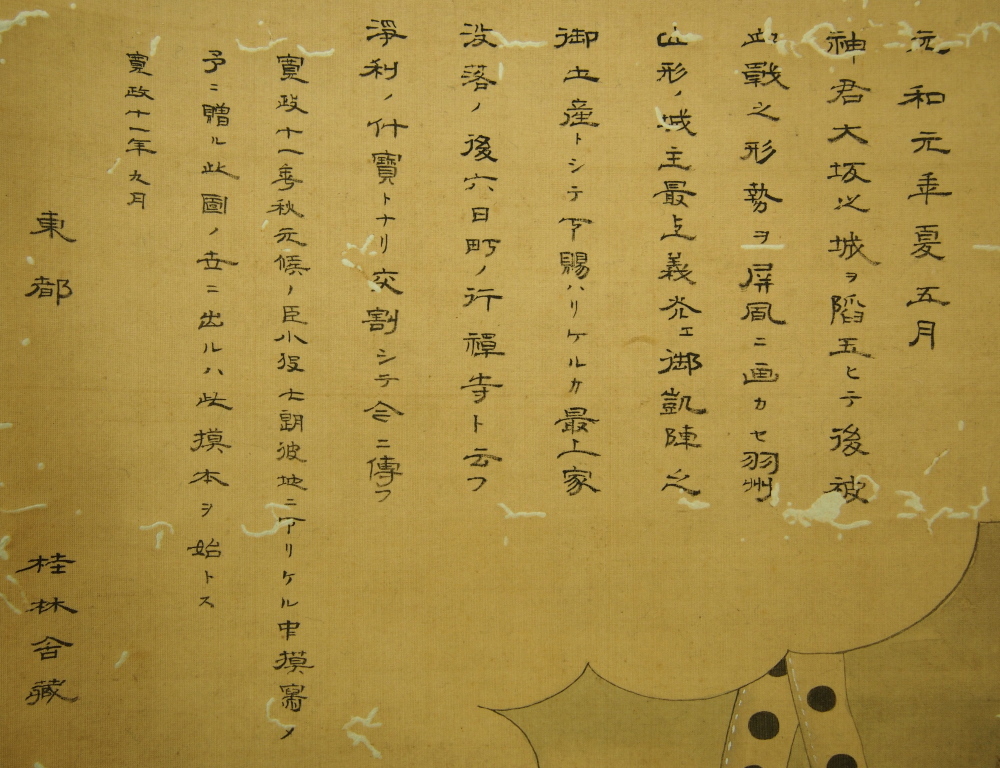 元和元年夏五月
神君大坂之城ヲ陷玉ヒテ後被
此戰之形勢ヲ屏風ニ画カセ羽州
山形ノ城主最上義光エ御凱陣之
御土産トシテ下賜ハリケルカ最上家
没落ノ後六日町ノ行禪寺ト云フ
淨利ノ什寶トナリ交割シテ今ニ傳フ
寛政十一年秋元候ノ臣小役士朗彼地ニアリケル中摸寫メ
予ニ贈ル此圖ノ世ニ出ルハ此摸本ヲ始トス
寛政十一年九月
東都 桂林舎藏